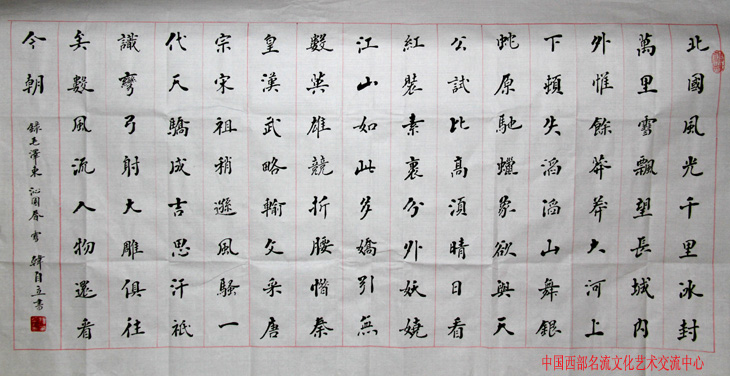 北國風光千里冰封
萬里雪飄望長城内
外惟餘莽莽大河上
下頓失滔滔山舞銀
蛇原馳蠟象欲與天
公試比高須晴日看
紅裝素裹分外妖嬈
江山如此多嬌引無
數英雄競折腰惜秦
皇漢武略輸文采唐
宗宋祖稍遜風騷一
代天驕成吉思汗祗
識彎弓射大雕俱往
矣數風流人物還看
今朝
錄毛澤東沁園春雪 韓自立書
中国西部名流文化艺术交流中心